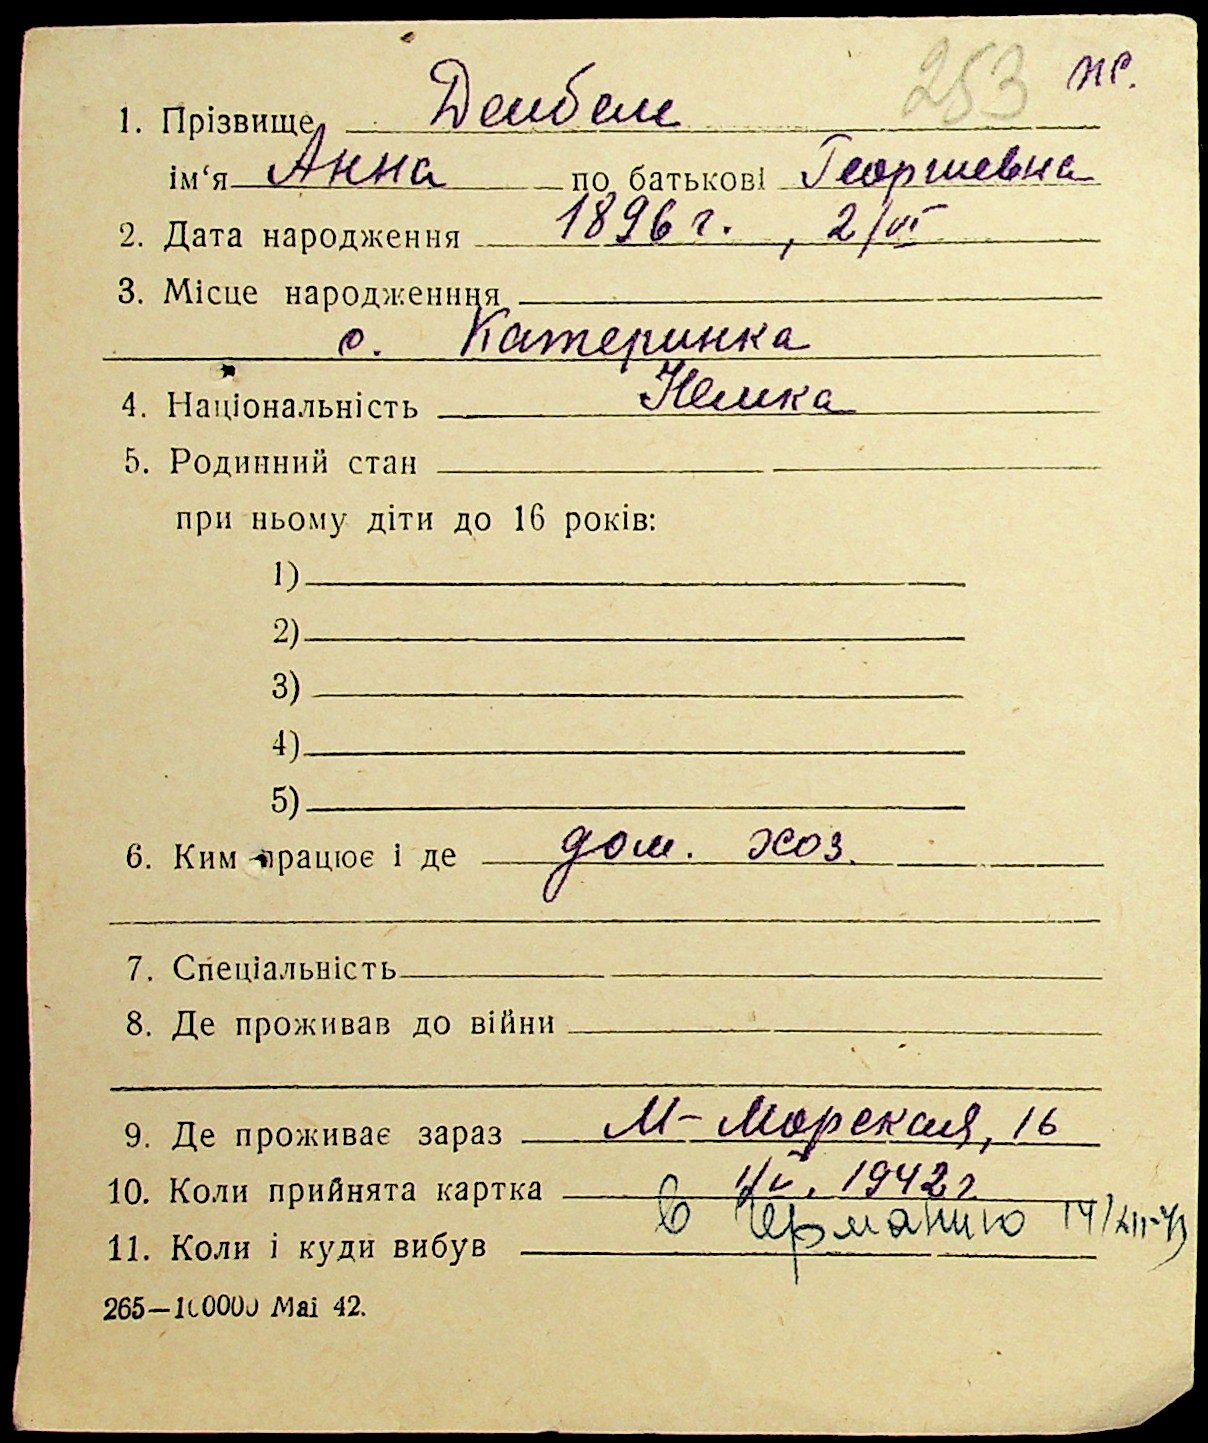 253 ж.
1. Прізвище Дембель
ім‘я Анна по батькові Георгиевна
2. Дата народження 1896 г. , 2/VI
3. Місце народженння
с. Катеринка
4. Національність Немка
5. Родинний стан
при ньому діти до 16 років:
1)
2)
3)
4)
5)
6. Ким працює і де дом. хоз.
7. Спеціальність
8. Де проживав до війни
9. Де проживає зараз М-Морская, 16
10. Коли прийнята картка 1942 г
в Германию
11. Коли і куди вибув
265—100000 Mai 42.